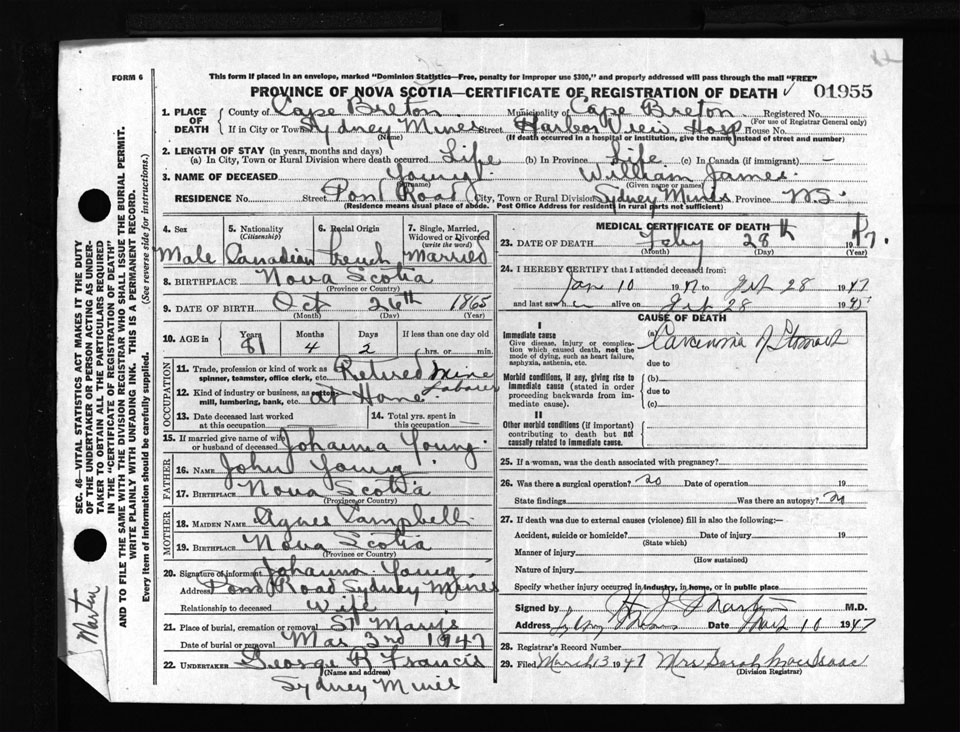 FORM 6
This form if placed in an envelope, marked "Dominion Statistics—Free, penalty for improper use $300," and properly addressed will pass through the mail "FREE"
PROVINCE OF NOVA SCOTIA—CERTIFICATE OF REGISTRATION OF DEATH 01955
1. PLACE OF DEATH County of Cape Breton Municipality of Cape Breton Registered No. (For use of Registrar General only)
If in City or Town Sydney Mines (Name) Street Harbor View Hosp House No.
(If death occurred in a hospital or institution, give the name instead of street and number)
2. LENGTH OF STAY (in years, months and days)
(a) In City, Town or Rural Division where death occurred Life (b) In Province Life (c) In Canada (if immigrant) —
3. NAME OF DECEASED Young (Surname) William James (Given name or names)
RESIDENCE No. Street Pond Road City, Town or Rural Division Sydney Mines Province N.S.
(Residence means usual place of abode. Post Office Address for residents in rural parts not sufficient)
4. Sex 5. Nationality (Citizenship) 6. Racial Origin 7. Single, Married, Widowed or Divorced (write the word)
Male Canadian French Married
8. BIRTHPLACE Nova Scotia
(Province or Country)
9. DATE OF BIRTH Oct 26th 1865
(Month) (Day) (Year)
10. AGE in Years Months Days If less than one day old
81 4 2 hrs. or min.
OCCUPATION
11. Trade, profession or kind of work as spinner, teamster, office clerk, etc. Retired Mine Laborer
12. Kind of industry or business, as cotton-mill, lumbering, bank, etc. at Home
13. Date deceased last worked at this occupation 14. Total yrs. spent in this occupation —
15. If married give name of wife or husband of deceased Johanna Young
FATHER
16. NAME John Young
17. BIRTHPLACE Nova Scotia
(Province or Country)
MOTHER
18. MAIDEN NAME Agnes Campbell
19. BIRTHPLACE Nova Scotia
(Province or Country)
20. Signature of informant Johanna Young
Address Pond Road Sydney Mines
Relationship to deceased Wife
21. Place of burial, cremation or removal St Marys
Date of burial or removal Mar 3nd 1947
22. UNDERTAKER George R Francis
(Name and address)
Sydney Mines
MEDICAL CERTIFICATE OF DEATH
23. DATE OF DEATH Feby 28th 1947.
(Month) (Day) (Year)
24. I HEREBY CERTIFY that I attended deceased from:
Jan 10 1947 to Feb 28 1947
and last saw h alive on Feb 28 1947
CAUSE OF DEATH
I
Immediate cause
Give disease, injury or complication which caused death, not the mode of dying, such as heart failure, asphyxia, asthenia, etc.
(a) Carcinoma of Stomach
due to
Morbid conditions, if any, giving rise to immediate cause (stated in order proceeding backwards from immediate cause).
(b)
due to
(c)
II
Other morbid conditions (if important) contributing to death but not causally related to immediate cause.
25. If a woman, was the death associated with pregnancy?
26. Was there a surgical operation? no Date of operation 19
State findings Was there an autopsy? no
27. If death was due to external causes (violence) fill in also the following:—
Accident, suicide or homicide? Date of injury 19
(State which)
Manner of injury
(How sustained)
Nature of injury
Specify whether injury occurred in industry, in home, or in public place
Signed by M.D.
Address Sydney Mines Date Mar 10 1947
28. Registrar's Record Number
29. Filed March 13 1947 Mrs Sarah MacIsaac
(Division Registrar)
SEC. 46—VITAL STATISTICS ACT MAKES IT THE DUTY
OF THE UNDERTAKER OR PERSON ACTING AS UNDER-
TAKER TO OBTAIN ALL THE PARTICULARS REQUIRED
IN THE "CERTIFICATE OF REGISTRATION OF DEATH"
AND TO FILE THE SAME WITH THE DIVISION REGISTRAR WHO SHALL ISSUE THE BURIAL PERMIT.
WRITE PLAINLY WITH UNFADING INK. THIS IS A PERMANENT RECORD.
Every item of Information should be carefully supplied. (See reverse side for instructions.)